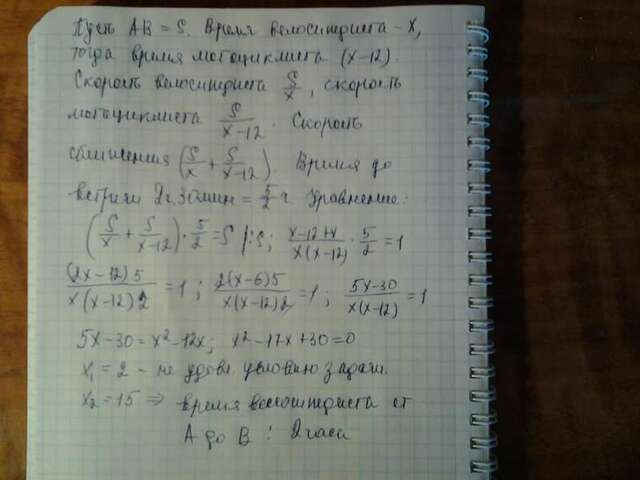 Пусть AB = S. Время велосипедиста - x,
тогда время мотоциклиста (x-12).
Скорость велосипедиста S/x, скорость
мотоциклиста S/(x-12). Скорость
сближения (S/x + S/(x-12)) Время до
встречи 2ч 30мин = 5/2 ч Уравнение:
(S/x + S/(x-12)) · 5/2 = S |:S; (x-12+x)/(x(x-12)) · 5/2 = 1
(2x-12)5/(x(x-12)2) = 1; 2(x-6)5/(x(x-12)2) = 1; (5x-30)/(x(x-12)) = 1
5x-30 = x²-12x; x²-17x+30=0
x₁ = 2 - не удовл. условию задачи.
x₂ = 15 ⇒ время велосипедиста от
A до B : 2 часа